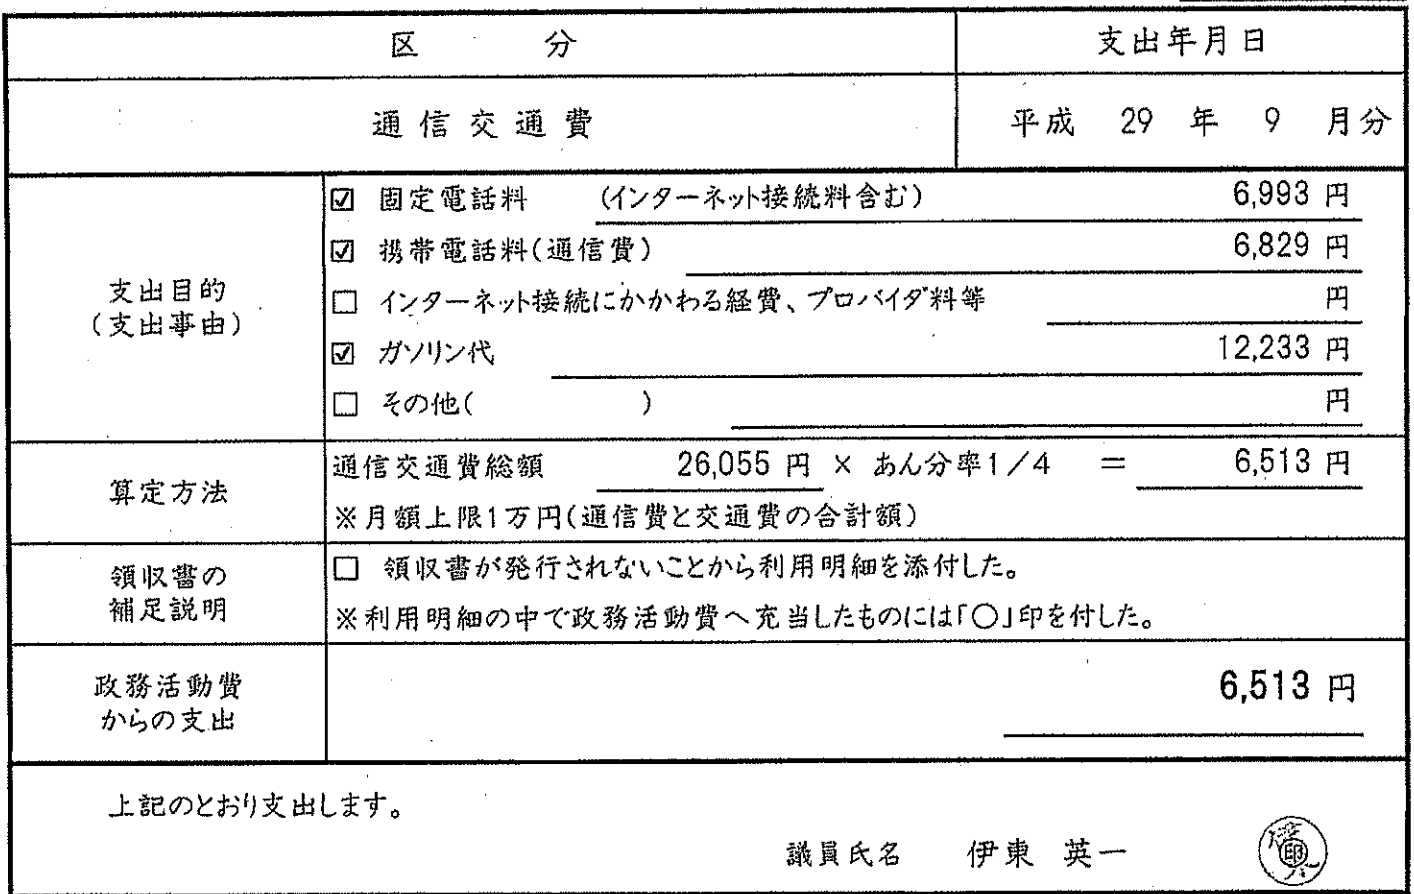 区 分 支出年月日
通信交通費 平成 29 年 9 月分
支出目的
(支出事由)
☑ 固定電話料 (インターネット接続料含む) 6,993 円
☑ 携帯電話料(通信費) 6,829 円
☐ インターネット接続にかかわる経費、プロバイダ料等 円
☑ ガソリン代 12,233 円
☐ その他( ) 円
算定方法
通信交通費総額 26,055 円 × あん分率1/4 = 6,513 円
※月額上限1万円(通信費と交通費の合計額)
領収書の
補足説明
☐ 領収書が発行されないことから利用明細を添付した。
※利用明細の中で政務活動費へ充当したものには「○」印を付した。
政務活動費
からの支出
6,513 円
上記のとおり支出します。
議員氏名 伊東 英一 印